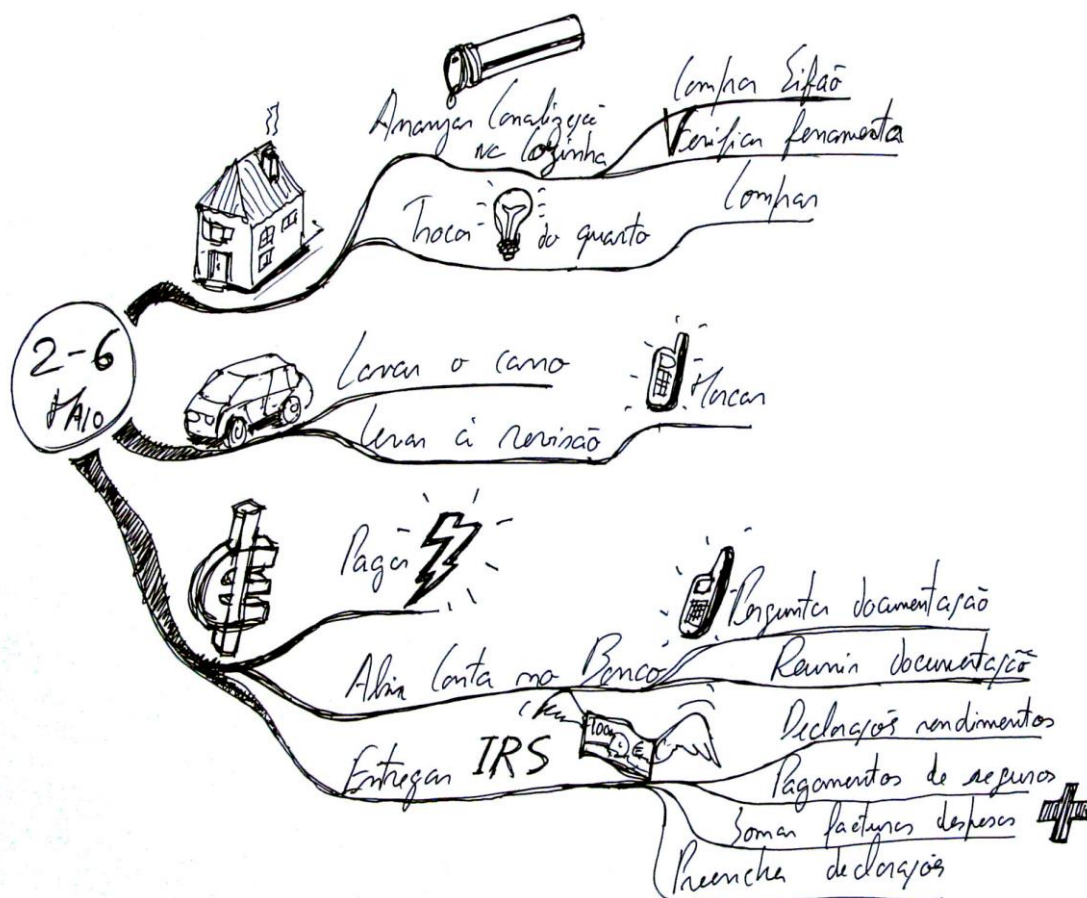 2-6
MAIO
Arranjar Canalização
na Cozinha
Comprar Sifão
Verificar ferramenta
Trocar do quarto
Comprar
Lavar o carro
Levar à revisão
Marcar
Pagar
Abrir Conta no Banco
Perguntar documentação
Reunir documentação
Entregar IRS
100
Declarações rendimentos
Pagamentos de seguros
Somar facturas despesas
Preencher declarações